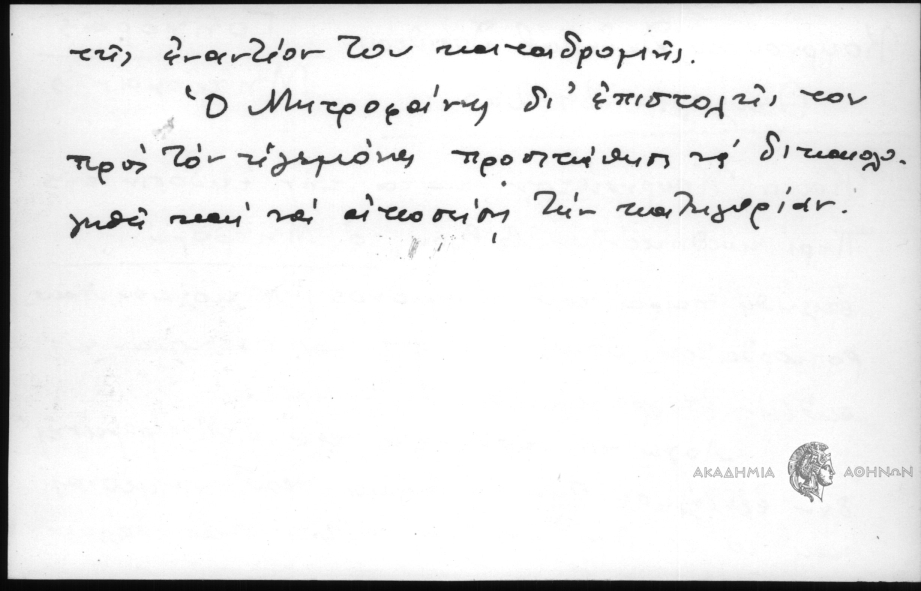 τῆς ἐναντίον του καταδρομῆς.
Ὁ Μητροφάνης δι' ἐπιστολῆς του
πρὸς τὸν ἡγεμόνα προσεπάθησε νὰ δικαιολο-
γηθῇ καὶ νὰ ἀποσείσῃ τὴν κατηγορίαν.
ΑΚΑΔΗΜΙΑ ΑΘΗΝΩΝ